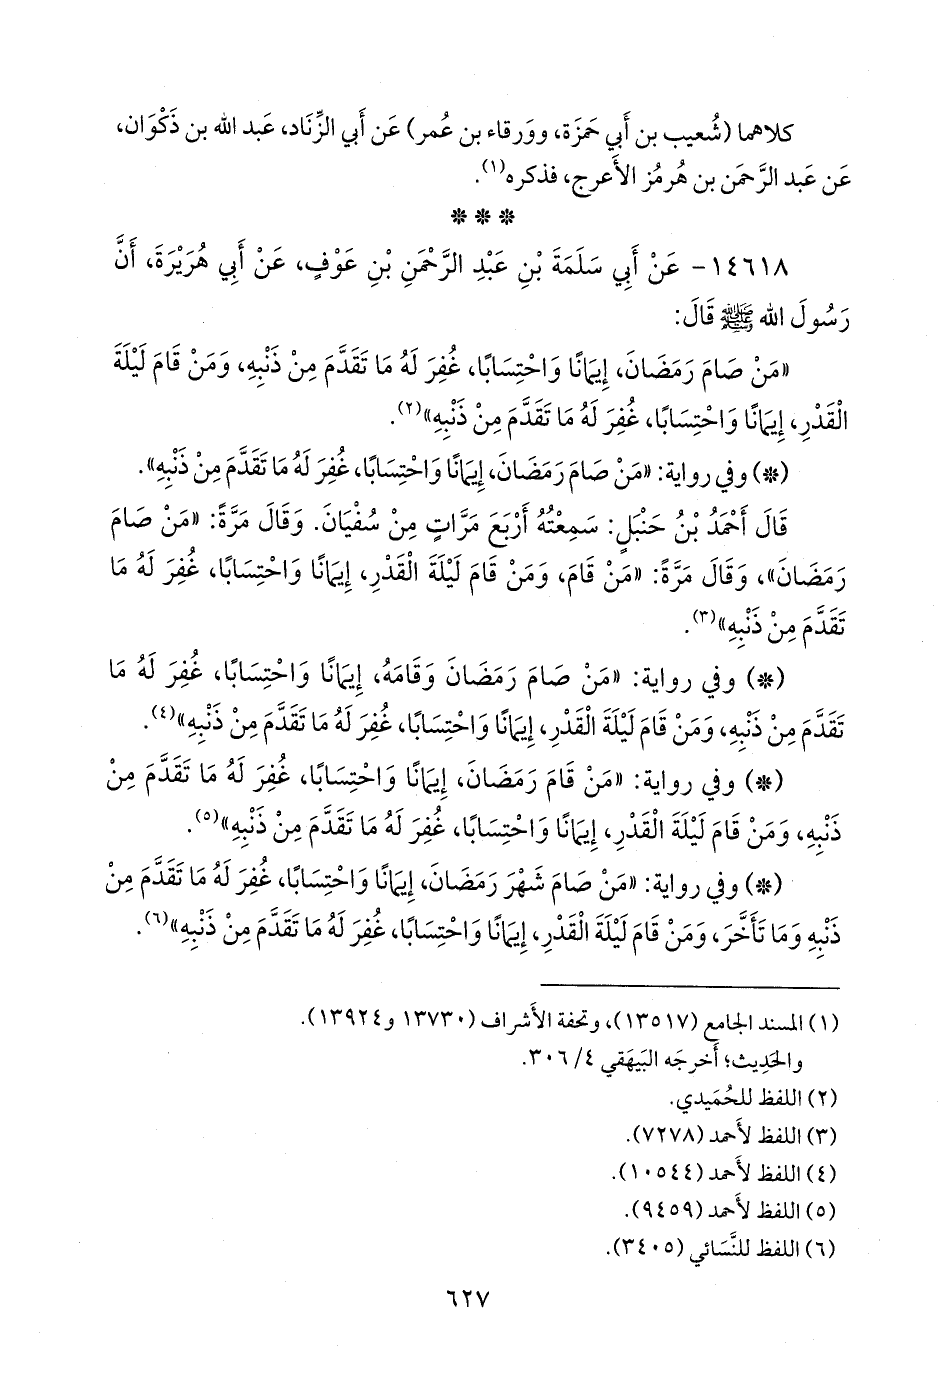 كلاهما (شُعيب بن أَبي حَمزَة، ووَرقاء بن عُمر) عَن أَبي الزِّنَاد، عَبد الله بن ذَكْوَان،
عَن عَبد الرَّحمَن بن هُرمُز الأَعرج، فذكره(١).
* * *
١٤٦١٨ - عَنْ أَبِي سَلَمَةَ بْنِ عَبْدِ الرَّحْمَنِ بْنِ عَوْفٍ، عَنْ أَبِي هُرَيْرَةَ، أَنَّ
رَسُولَ الله ﷺ قَالَ:
«مَنْ صَامَ رَمَضَانَ، إِيمَانًا وَاحْتِسَابًا، غُفِرَ لَهُ مَا تَقَدَّمَ مِنْ ذَنْبِهِ، وَمَنْ قَامَ لَيْلَةَ
الْقَدْرِ، إِيمَانًا وَاحْتِسَابًا، غُفِرَ لَهُ مَا تَقَدَّمَ مِنْ ذَنْبِهِ»(٢).
(*) وفي رواية: «مَنْ صَامَ رَمَضَانَ، إِيمَانًا وَاحْتِسَابًا، غُفِرَ لَهُ مَا تَقَدَّمَ مِنْ ذَنْبِهِ».
قَالَ أَحْمَدُ بْنُ حَنْبَلٍ: سَمِعْتُهُ أَرْبَعَ مَرَّاتٍ مِنْ سُفْيَانَ. وَقَالَ مَرَّةً: «مَنْ صَامَ
رَمَضَانَ»، وَقَالَ مَرَّةً: «مَنْ قَامَ، وَمَنْ قَامَ لَيْلَةَ الْقَدْرِ، إِيمَانًا وَاحْتِسَابًا، غُفِرَ لَهُ مَا
تَقَدَّمَ مِنْ ذَنْبِهِ»(٣).
(*) وفي رواية: «مَنْ صَامَ رَمَضَانَ وَقَامَهُ، إِيمَانًا وَاحْتِسَابًا، غُفِرَ لَهُ مَا
تَقَدَّمَ مِنْ ذَنْبِهِ، وَمَنْ قَامَ لَيْلَةَ الْقَدْرِ، إِيمَانًا وَاحْتِسَابًا، غُفِرَ لَهُ مَا تَقَدَّمَ مِنْ ذَنْبِهِ»(٤).
(*) وفي رواية: «مَنْ قَامَ رَمَضَانَ، إِيمَانًا وَاحْتِسَابًا، غُفِرَ لَهُ مَا تَقَدَّمَ مِنْ
ذَنْبِهِ، وَمَنْ قَامَ لَيْلَةَ الْقَدْرِ، إِيمَانًا وَاحْتِسَابًا، غُفِرَ لَهُ مَا تَقَدَّمَ مِنْ ذَنْبِهِ»(٥).
(*) وفي رواية: «مَنْ صَامَ شَهْرَ رَمَضَانَ، إِيمَانًا وَاحْتِسَابًا، غُفِرَ لَهُ مَا تَقَدَّمَ مِنْ
ذَنْبِهِ وَمَا تَأَخَّرَ، وَمَنْ قَامَ لَيْلَةَ الْقَدْرِ، إِيمَانًا وَاحْتِسَابًا، غُفِرَ لَهُ مَا تَقَدَّمَ مِنْ ذَنْبِهِ»(٦).
(١) المسند الجامع (١٣٥١٧)، وتحفة الأَشراف (١٣٧٣٠ و١٣٩٢٤).
والحَدِيث؛ أَخرجَه البَيهَقي ٤/ ٣٠٦.
(٢) اللفظ للحُمَيدي.
(٣) اللفظ لأَحمد (٧٢٧٨).
(٤) اللفظ لأَحمد (١٠٥٤٤).
(٥) اللفظ لأَحمد (٩٤٥٩).
(٦) اللفظ للنَّسَائي (٣٤٠٥).
٦٢٧